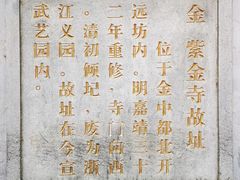 金 紫金寺故址
位于金中都北开
远坊内。明嘉靖三十
二年重修，寺门向西
。清初倾圮，废为浙
江义园。故址在今宣
武艺园内。